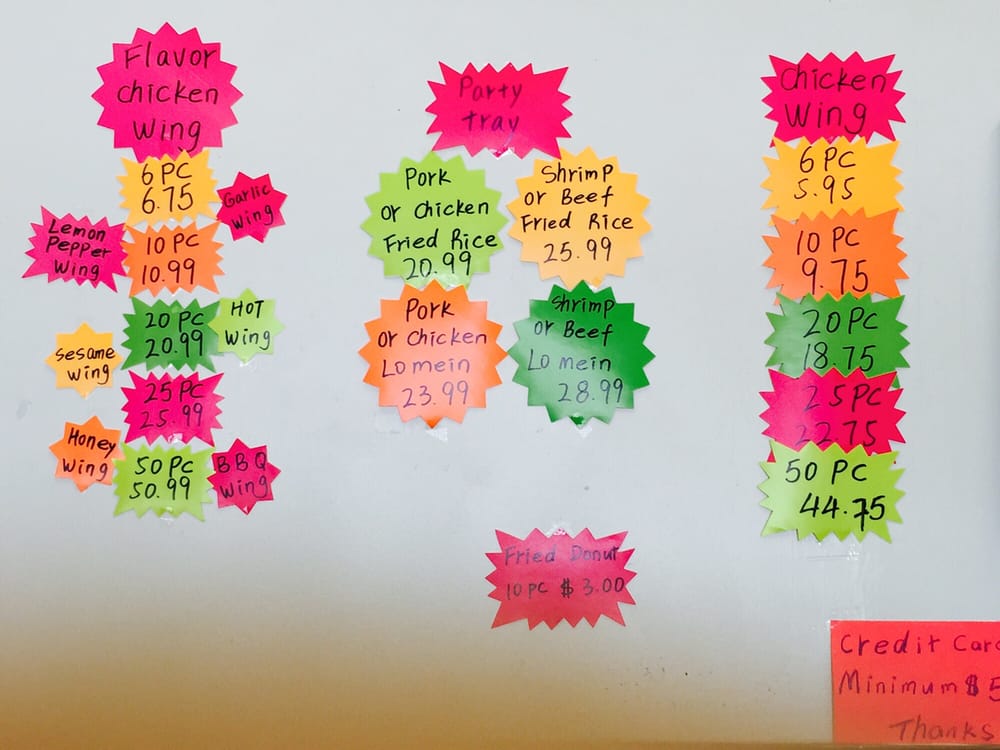 Flavor
chicken
Wing
6 PC
6.75
Garlic
wing
Lemon
Pepper
Wing
10 PC
10.99
20 PC
20.99
HOT
wing
Sesame
wing
25 PC
25.99
Honey
wing
50 PC
50.99
BBQ
wing
Party
tray
Pork
or Chicken
Fried Rice
20.99
Shrimp
or Beef
Fried Rice
25.99
Pork
or Chicken
Lo mein
23.99
Shrimp
or Beef
Lo mein
28.99
Fried Donut
10 PC $ 3.00
Chicken
Wing
6 PC
5.95
10 PC
9.75
20 PC
18.75
25 PC
22.75
50 PC
44.75
Credit
Minimum $ 5
Thanks